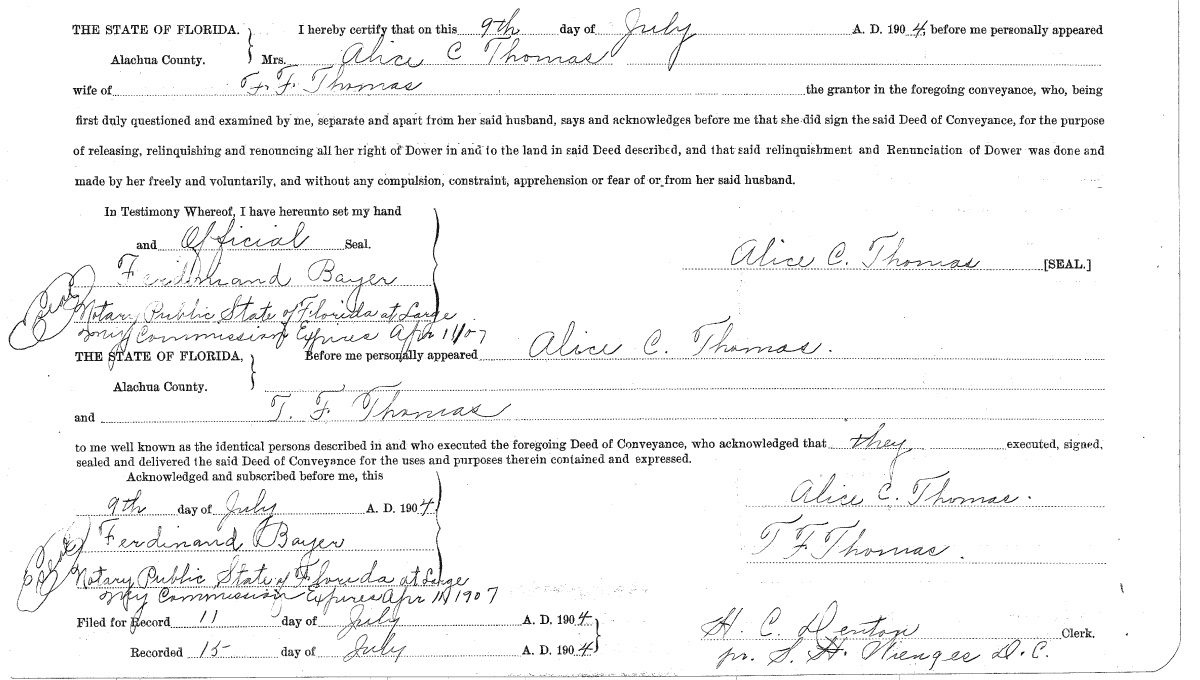 THE STATE OF FLORIDA. I hereby certify that on this 9th day of July A. D. 1904, before me personally appeared
Alachua County. Mrs. Alice C Thomas
wife of F. F. Thomas the grantor in the foregoing conveyance, who, being
first duly questioned and examined by me, separate and apart from her said husband, says and acknowledges before me that she did sign the said Deed of Conveyance, for the purpose
of releasing, relinquishing and renouncing all her right of Dower in and to the land in said Deed described, and that said relinquishment and Renunciation of Dower was done and
made by her freely and voluntarily, and without any compulsion, constraint, apprehension or fear of or from her said husband.
In Testimony Whereof, I have hereunto set my hand
and Official Seal.
Alice C. Thomas [SEAL.]
Ferdinand Bayer
Notary Public State of Florida at Large
My Commission Expires Apr 11/07
THE STATE OF FLORIDA, Before me personally appeared Alice C. Thomas.
Alachua County.
and T. F Thomas
to me well known as the identical persons described in and who executed the foregoing Deed of Conveyance, who acknowledged that they executed, signed,
sealed and delivered the said Deed of Conveyance for the uses and purposes therein contained and expressed.
Acknowledged and subscribed before me, this
9th day of July A. D. 1904
Alice C. Thomas.
Ferdinand Bayer
T F Thomas.
Notary Public State of Florida at Large
My Commission Expires Apr 11 1907
Filed for Record 11 day of July A. D. 1904
H. C. Denton Clerk.
Recorded 15 day of July A. D. 1904
pr. S. H. Wienges D. C.